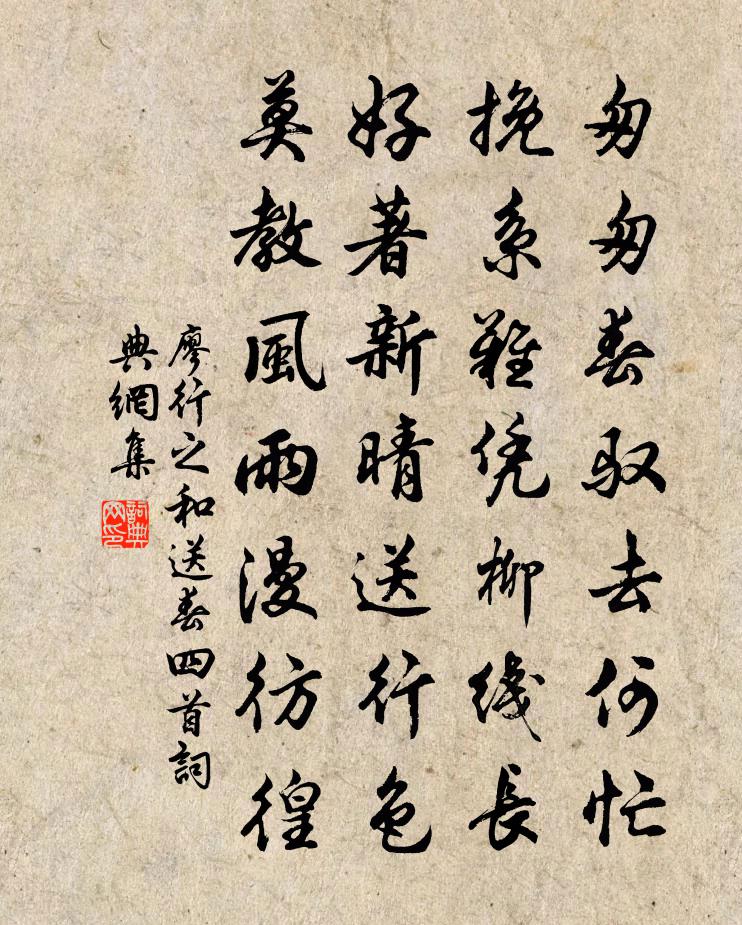 匆匆春驭去何忙
挽系難凭柳綫長
好著新晴送行色
莫教風雨漫彷徨
廖行之和送春四首詞
典網集
詞典网印